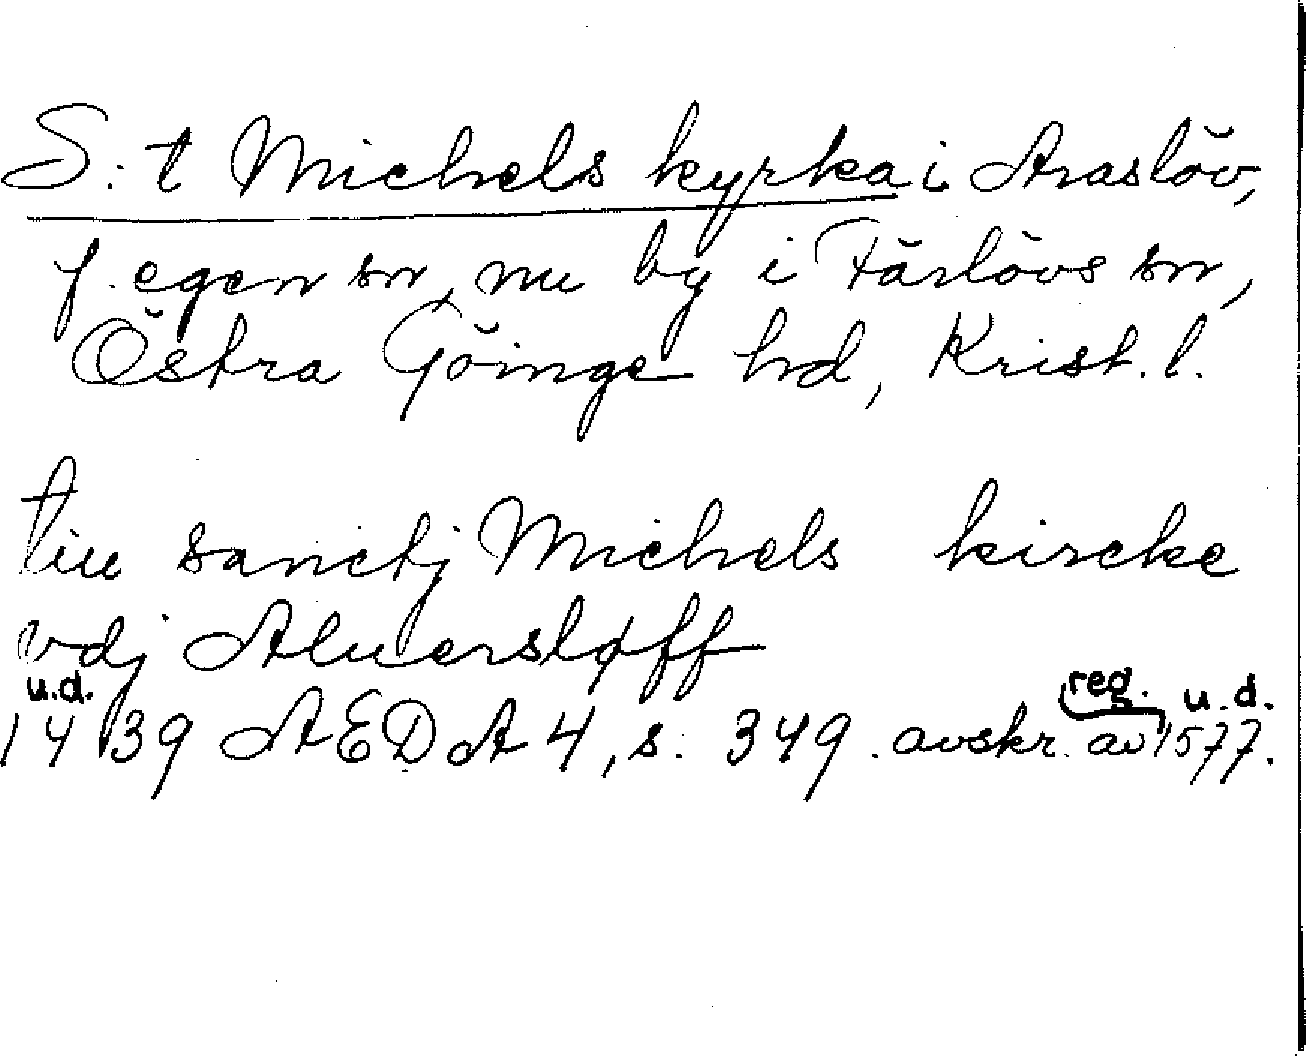 S:t Michels kyrka i Araslöv,
f. egen sn, nu by i Färlövs sn,
Östra Göinge hd, Krist. l.
tiu sanctj Michels kircke
vdj Aluersløff
u.d. reg. u.d.
1439 AEDA 4, s. 349. avskr. av 1577.